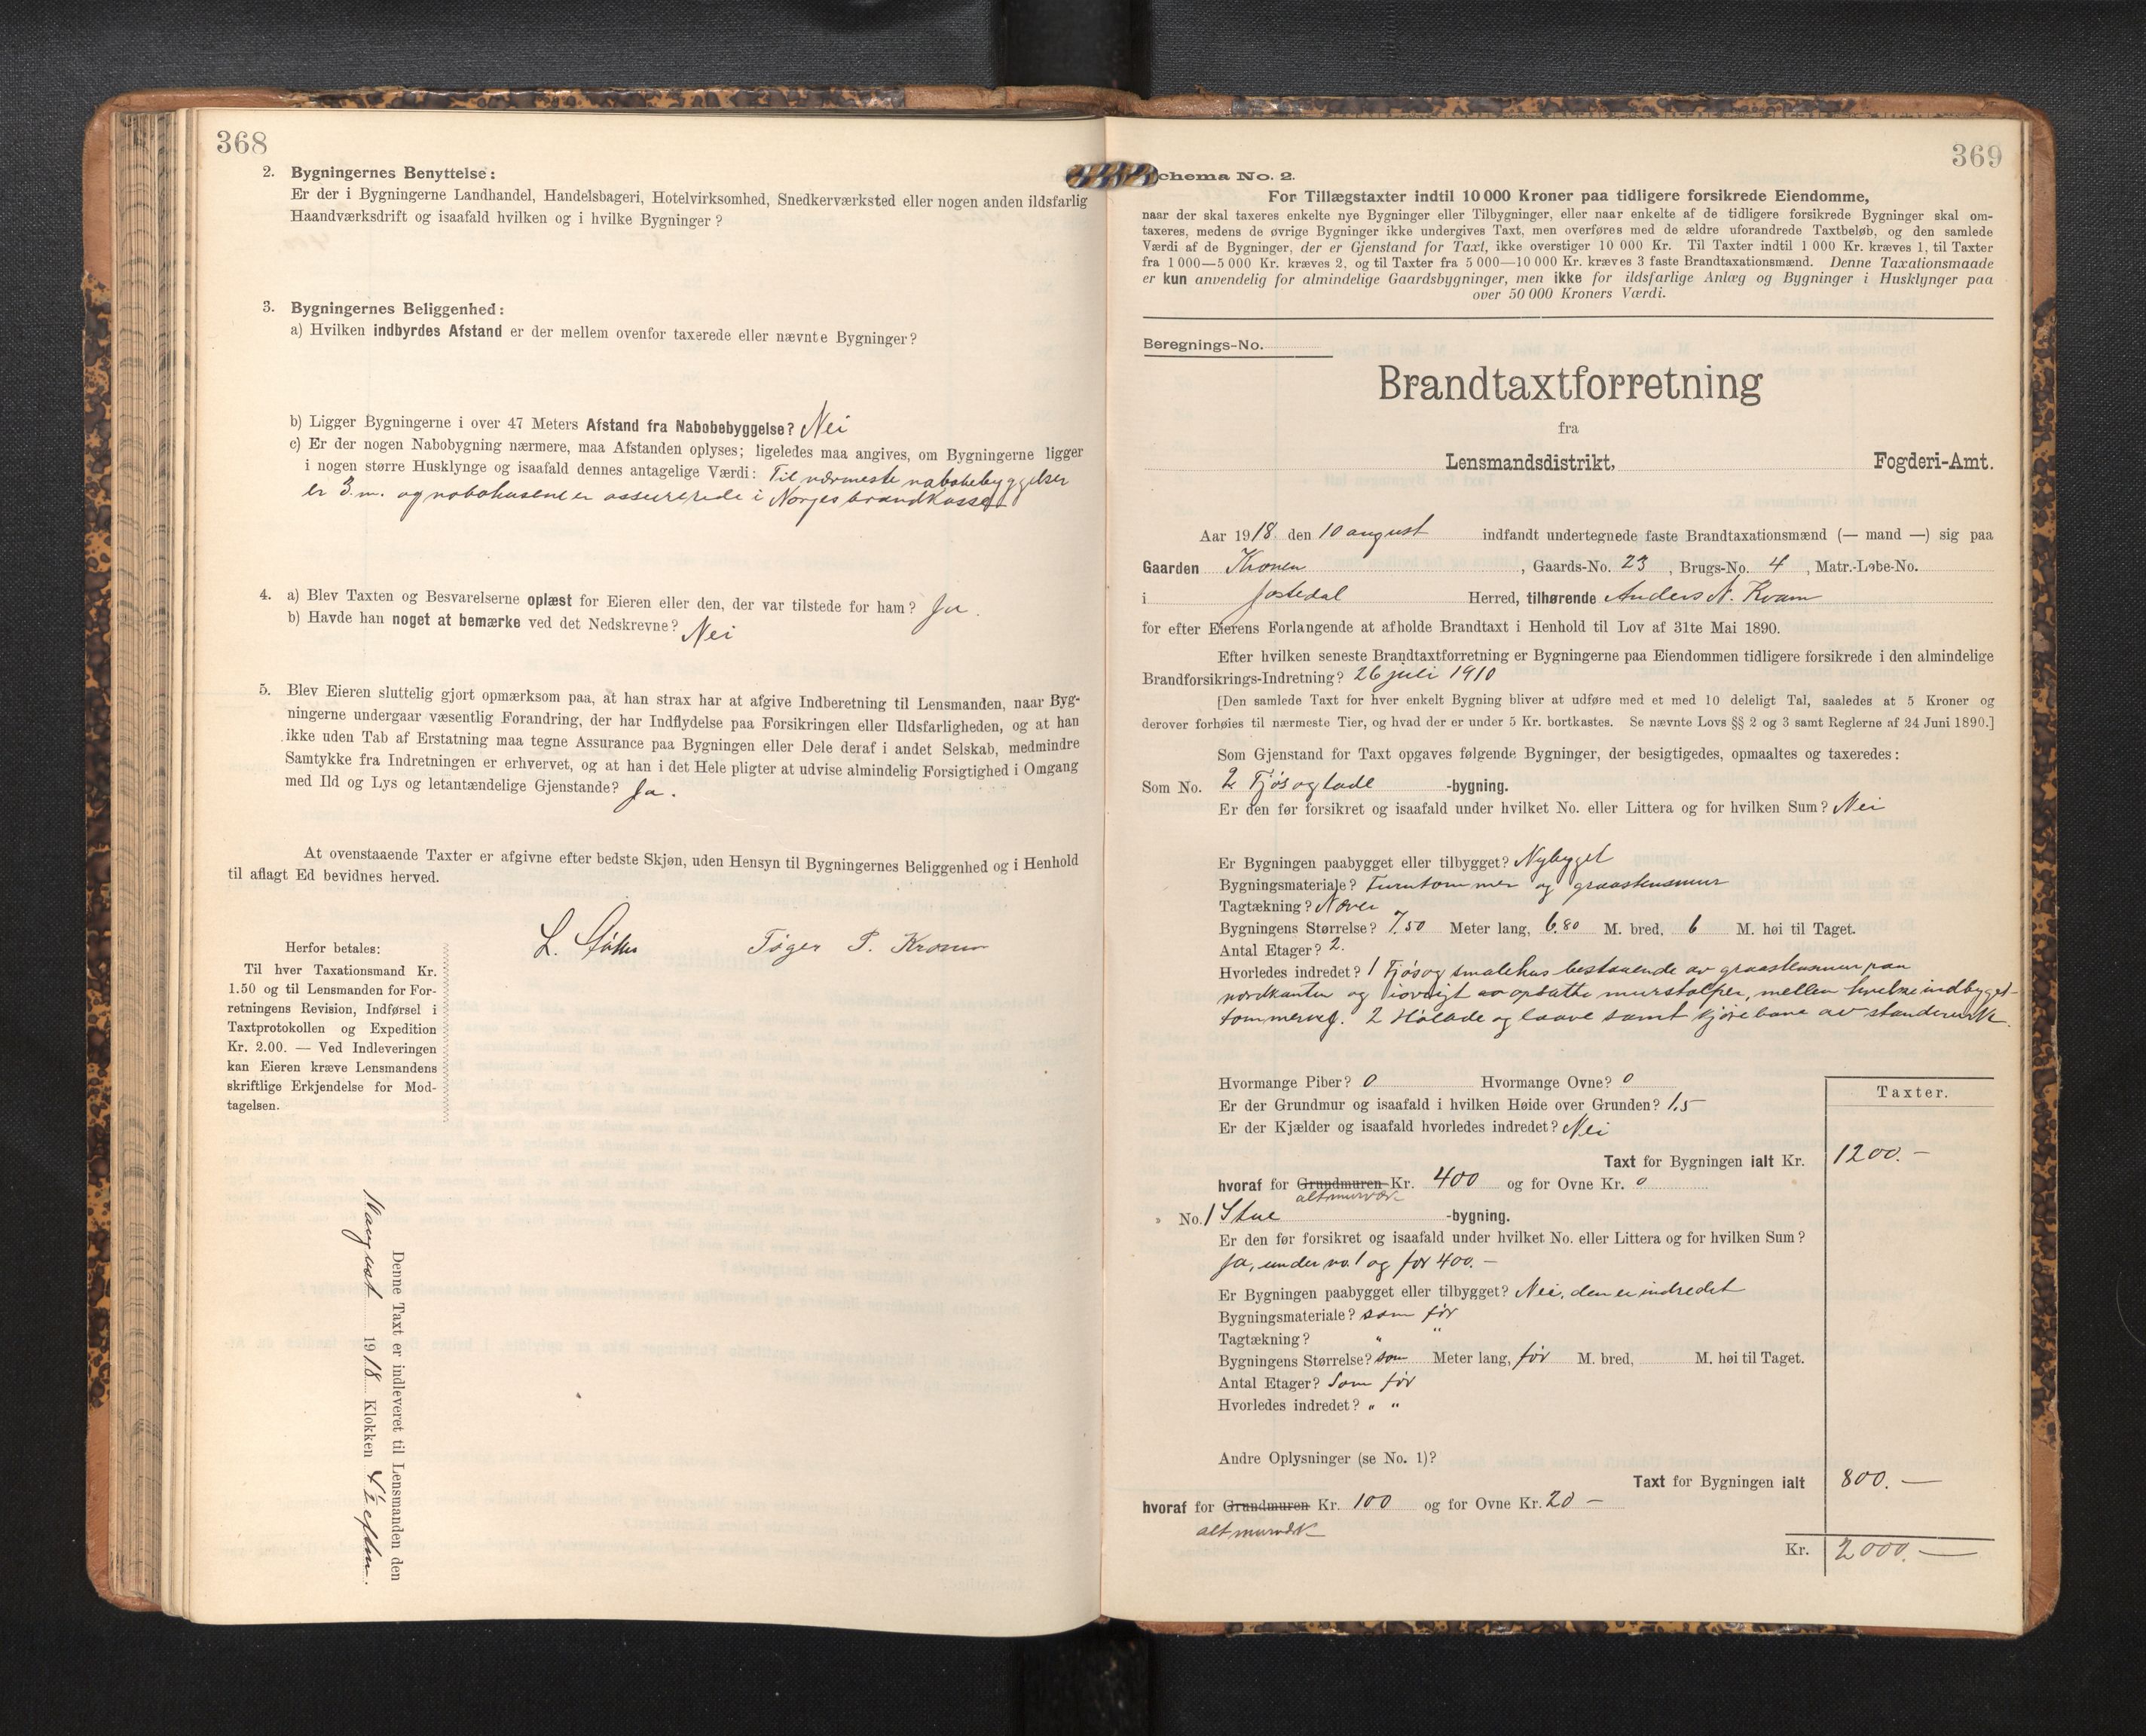 368
2. Bygningernes Benyttelse:
Er der i Bygningerne Landhandel, Handelsbageri, Hotelvirksomhed, Snedkerværksted eller nogen anden ildsfarlig
Haandværksdrift og isaafald hvilken og i hvilke Bygninger?
3. Bygningernes Beliggenhed:
a) Hvilken indbyrdes Afstand er der mellem ovenfor taxerede eller nævnte Bygninger?
b) Ligger Bygningerne i over 47 Meters Afstand fra Nabobebyggelse? Nei
c) Er der nogen Nabobygning nærmere, maa Afstanden oplyses; ligeledes maa angives, om Bygningerne ligger
i nogen større Husklynge og isaafald dennes antagelige Værdi: Til nærmeste nabobebyggelser
er 3 m. og nabohusene er assurerede i Norges brandkasse
4. a) Blev Taxten og Besvarelserne oplæst for Eieren eller den, der var tilstede for ham? Ja.
b) Havde han noget at bemærke ved det Nedskrevne? Nei
5. Blev Eieren sluttelig gjort opmærksom paa, at han strax har at afgive Indberetning til Lensmanden, naar Byg-
ningerne undergaar væsentlig Forandring, der har Indflydelse paa Forsikringen eller Ildsfarligheden, og at han
ikke uden Tab af Erstatning maa tegne Assurance paa Bygningen eller Dele deraf i andet Selskab, medmindre
Samtykke fra Indretningen er erhvervet, og at han i det Hele pligter at udvise almindelig Forsigtighed i Omgang
med Ild og Lys og letantændelige Gjenstande? Ja.
At ovenstaaende Taxter er afgivne efter bedste Skjøn, uden Hensyn til Bygningernes Beliggenhed og i Henhold
til aflagt Ed bevidnes herved.
L. Tøger P. Kronen
Herfor betales:
Til hver Taxationsmand Kr.
1.50 og til Lensmanden for For-
retningens Revision, Indførsel i
Taxtprotokollen og Expedition
Kr. 2.00. — Ved Indleveringen
kan Eieren kræve Lensmandens
skriftlige Erkjendelse for Mod-
tagelsen.
Denne Taxt er indleveret til Lensmanden den
august 1918 Klokken 4½ eftm.
369
chema No. 2.
For Tillægstaxter indtil 10 000 Kroner paa tidligere forsikrede Eiendomme,
naar der skal taxeres enkelte nye Bygninger eller Tilbygninger, eller naar enkelte af de tidligere forsikrede Bygninger skal om-
taxeres, medens de øvrige Bygninger ikke undergives Taxt, men overføres med de ældre uforandrede Taxtbeløb, og den samlede
Værdi af de Bygninger, der er Gjenstand for Taxt, ikke overstiger 10 000 Kr. Til Taxter indtil 1 000 Kr. kræves 1, til Taxter
fra 1 000—5 000 Kr. kræves 2, og til Taxter fra 5 000—10 000 Kr. kræves 3 faste Brandtaxationsmænd. Denne Taxationsmaade
er kun anvendelig for almindelige Gaardsbygninger, men ikke for ildsfarlige Anlæg og Bygninger i Husklynger paa
over 50 000 Kroners Værdi.
Beregnings-No.
Brandtaxtforretning
fra
Lensmandsdistrikt, Fogderi-Amt.
Aar 1918 den 10 august indfandt undertegnede faste Brandtaxationsmænd (— mand —) sig paa
Gaarden Kronen, Gaards-No. 23, Brugs-No. 4, Matr.-Løbe-No.
i Jostedal Herred, tilhørende Anders N. Kvam
for efter Eierens Forlangende at afholde Brandtaxt i Henhold til Lov af 31te Mai 1890.
Efter hvilken seneste Brandtaxtforretning er Bygningerne paa Eiendommen tidligere forsikrede i den almindelige
Brandforsikrings-Indretning? 26 juli 1910
[Den samlede Taxt for hver enkelt Bygning bliver at udføre med et med 10 deleligt Tal, saaledes at 5 Kroner og
derover forhøies til nærmeste Tier, og hvad der er under 5 Kr. bortkastes. Se nævnte Lovs §§ 2 og 3 samt Reglerne af 24 Juni 1890.]
Som Gjenstand for Taxt opgaves følgende Bygninger, der besigtigedes, opmaaltes og taxeredes:
Som No. 2 Fjøs og lade -bygning.
Er den før forsikret og isaafald under hvilket No. eller Littera og for hvilken Sum? Nei
Er Bygningen paabygget eller tilbygget? Nybygget
Bygningsmateriale? Furutømmer og graastensmur
Tagtækning? Never
Bygningens Størrelse? 7.50 Meter lang, 6.80 M. bred, 6 M. høi til Taget.
Antal Etager? 2.
Hvorledes indredet? 1 Fjøs og smalehus bestaaende av graastensmur paa
nordkanten og iøvrigt av opsatte murstolper, mellem hvilke indbygget
tømmerveg. 2 Hølade og laave samt kjørebane av standerverk.
Hvormange Piber? 0 Hvormange Ovne? 0
Er der Grundmur og isaafald i hvilken Høide over Grunden? 1.5
Er der Kjælder og isaafald hvorledes indredet? Nei
Taxter.
Taxt for Bygningen ialt Kr. 1200.—
hvoraf for Grundmuren Kr. 400 og for Ovne Kr. 0
alt murverk
» No. 1 Stue -bygning.
Er den før forsikret og isaafald under hvilket No. eller Littera og for hvilken Sum?
Ja, under no. 1 og for 400.—
Er Bygningen paabygget eller tilbygget? Nei, den er indredet
Bygningsmateriale? som før
Tagtækning? " "
Bygningens Størrelse? som Meter lang, før M. bred, M. høi til Taget.
Antal Etager? Som før
Hvorledes indredet? " "
Andre Oplysninger (se No. 1)?
Taxt for Bygningen ialt 800.—
hvoraf for Grundmuren Kr. 100 og for Ovne Kr. 20 —
alt murverk
Kr. 2000.—